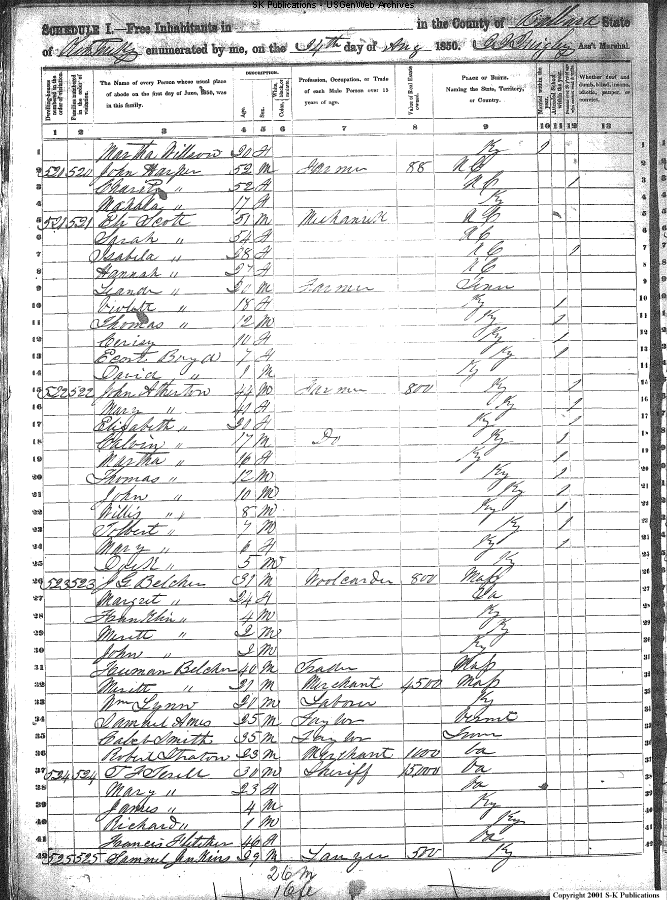 S-K Publications - USGenWeb Archives
SCHEDULE I.—Free Inhabitants in in the County of Ballard State
of Kentucky enumerated by me, on the 24th day of Aug 1850. Ass't Marshal.
Dwelling-houses numbered in the order of visitation.
Families numbered in the order of visitation.
The Name of every Person whose usual place of abode on the first day of June, 1850, was in this family.
DESCRIPTION.
Age.
Sex.
Color, White, black, or mulatto.
Profession, Occupation, or Trade of each Male Person over 15 years of age.
Value of Real Estate owned.
PLACE OF BIRTH.
Naming the State, Territory, or Country.
Married within the year.
Whether deaf and dumb, blind, insane, idiotic, pauper, or convict.
1 2 3 4 5 6 7 8 9 10 11 12 13
1 Martha Willson 20 F Ky 1
2 521 520 John Harper 52 M Farmer 88 N C
3 " 52 F N C 1
4 Mahala " 17 F Ky
5 521 521 Eli Scott 51 M Mechanick N C
6 Sarah " 54 F N C
7 Isabila " 28 F N C 1
8 Hannah " 27 F N C
9 Leander " 20 M Farmer Tenn
10 Violett " 18 F Ky 1
11 Thomas " 12 M Ky 1
12 " 10 F Ky 1
13 Boyd 7 F Ky 1
14 David " 1 M Ky
15 522 522 John Atherton 44 M Farmer 800 Ky 1
16 Mary " 41 F Ky 1
17 Elizabeth " 21 F Ky 1
18 Calvin " 17 M Do Ky 1
19 Martha " 16 F Ky 1
20 Thomas " 12 M Ky 1
21 John " 10 M Ky 1
22 Willis " 8 M Ky 1
23 Tolbert " 7 M Ky 1
24 Mary " 6 F Ky 1
25 " 5 M Ky
26 523 523 J G Belcher 31 M Woolcarder 800 Mass
27 Margret " 24 F Va
28 Franklin " 4 M Ky
29 Meritt " 2 M Ky
30 John " 2 M Ky
31 Human Belcher 40 M Trader Mass
32 Meritt " 21 M Merchant 4500 Mass
33 Wm Lynn 21 M Labourer Ky
34 Samuel Ames 25 M Taylor Vermt
35 Caleb Smith 35 M Taylor
36 Robert Straton 23 M Merchant 1000 Va
37 524 524 T J Terill 30 M Sheriff 15,000 Va
38 Mary " 23 F Va
39 James " 4 M Ky
40 Richard " 1 M Ky
41 Francis Fletcher 46 F Va
42 525 525 Samuel Jenkins 29 M Lawyer 500 Ky
26 M
16 Fe
Copyright 2001 S-K Publications